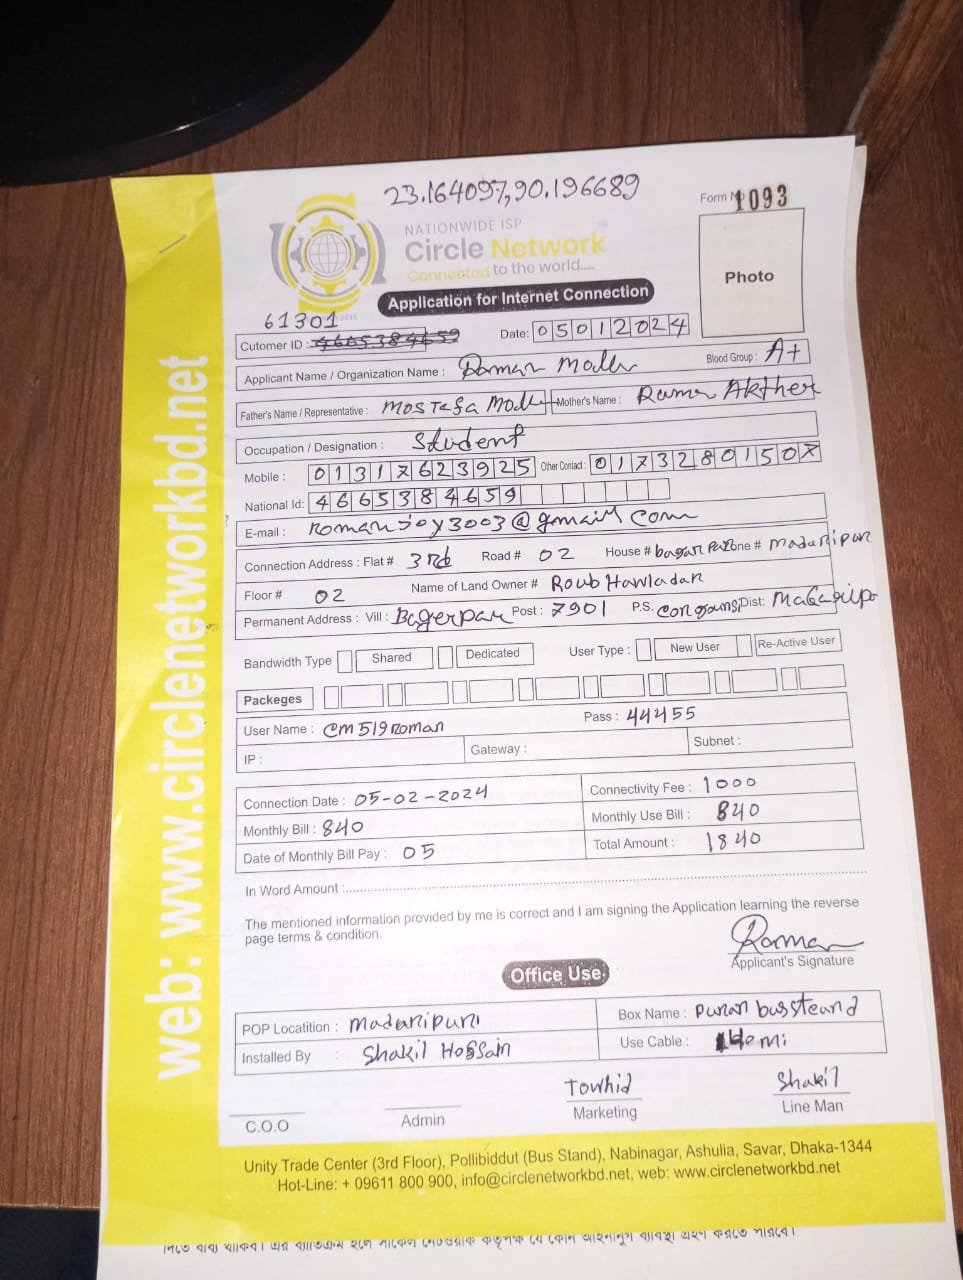 23.164097,90.196689
Form No 1093
NATIONWIDE ISP
Circle Network
Connected to the world.....
Photo
Application for Internet Connection
61301
Cutomer ID : 4665384659
Date: 05012024
Applicant Name / Organization Name : Roman Modh
Blood Group : A+
Father's Name / Representative : Mostafa Mother's Name : Ruma Akther
Occupation / Designation : Student
Mobile : 01317623925 Other Contact : 01732801507
National Id: 4665384659
E-mail : romanjoy3003@gmail com
Connection Address : Flat # 3rd Road # 02 House # bagar Par Zone # Madaripur
Floor # 02 Name of Land Owner # Roub Hawladar
Permanent Address : Vill : Bagerpar Post : 7901 P.S. Dist: Madaripur
Bandwidth Type Shared Dedicated User Type : New User Re-Active User
Packeges
User Name : cm519roman Pass : 44455
IP : Gateway : Subnet :
Connection Date : 05-02-2024 Connectivity Fee : 1000
Monthly Bill : 840 Monthly Use Bill : 840
Date of Monthly Bill Pay : 05 Total Amount : 1840
In Word Amount :
The mentioned information provided by me is correct and I am signing the Application learning the reverse
page terms & condition.
Roman
Applicant's Signature
Office Use
POP Locatition : Madaripur Box Name : Puran bussteand
Installed By : Shakil Hossain Use Cable : 40mi
Towhid Shakil
C.O.O Admin Marketing Line Man
Unity Trade Center (3rd Floor), Pollibiddut (Bus Stand), Nabinagar, Ashulia, Savar, Dhaka-1344
Hot-Line: + 09611 800 900, info@circlenetworkbd.net, web: www.circlenetworkbd.net
web: www.circlenetworkbd.net